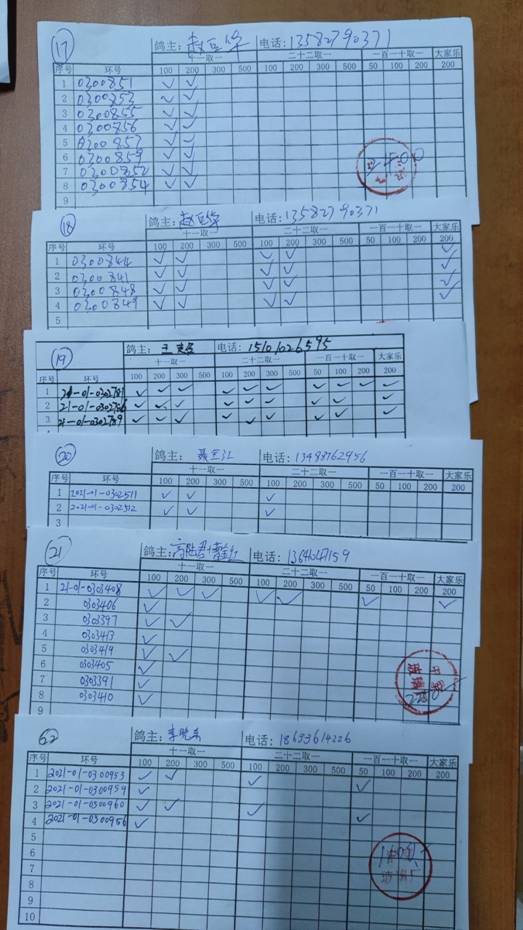 17 鸽主: 电话: 13582790371
十一取一 二十二取一 一百一十取一 大家乐
序号 环号 100 200 300 500 100 200 300 500 50 100 200 200
1 0300851 ✓ ✓
2 0300853 ✓ ✓
3 0300855 ✓ ✓
4 0300856 ✓ ✓
5 0300857 ✓ ✓
6 0300859 ✓ ✓
7 0300852 ✓ ✓
8 0300854 ✓ ✓
9
18 鸽主: 电话: 13582790371
十一取一 二十二取一 一百一十取一 大家乐
序号 环号 100 200 300 500 100 200 300 500 50 100 200 200
1 0300844 ✓ ✓ ✓ ✓ ✓
2 0300841 ✓ ✓ ✓ ✓ ✓
3 0300848 ✓ ✓ ✓ ✓ ✓
4 0300849 ✓ ✓ ✓ ✓ ✓
5
19 鸽主: 王 电话: 15101026595
十一取一 二十二取一 一百一十取一 大家乐
序号 环号 100 200 300 500 100 200 300 500 50 100 200 200
1 21-01-0302781 ✓ ✓ ✓ ✓ ✓ ✓ ✓ ✓ ✓ ✓
2 21-01-0302786 ✓ ✓ ✓ ✓ ✓ ✓ ✓ ✓ ✓
3 21-01-0302789 ✓ ✓ ✓ ✓ ✓ ✓ ✓ ✓
20 鸽主: 聂 江 电话: 13488762956
十一取一 二十二取一 一百一十取一 大家乐
序号 环号 100 200 300 500 100 200 300 500 50 100 200 200
1 2021-01-0302511 ✓ ✓ ✓
2 2021-01-0302512 ✓ ✓ ✓
21 鸽主: 电话:
十一取一 二十二取一 一百一十取一 大家乐
序号 环号 100 200 300 500 100 200 300 500 50 100 200 200
1 21-01-0303408 ✓ ✓ ✓ ✓ ✓ ✓ ✓
2 0303406 ✓
3 0303397 ✓ ✓
4 0303413 ✓
5 0303419 ✓ ✓
6 0303405 ✓
7 0303391 ✓
8 0303410 ✓
9
62 鸽主: 李 电话: 18633614226
十一取一 二十二取一 一百一十取一 大家乐
序号 环号 100 200 300 500 100 200 300 500 50 100 200 200
1 2021-01-0300953 ✓ ✓ ✓
2 2021-01-0300959 ✓ ✓
3 2021-01-0300960 ✓ ✓ ✓
4 2021-01-0300956 ✓ ✓
5
6
7
8
9
10